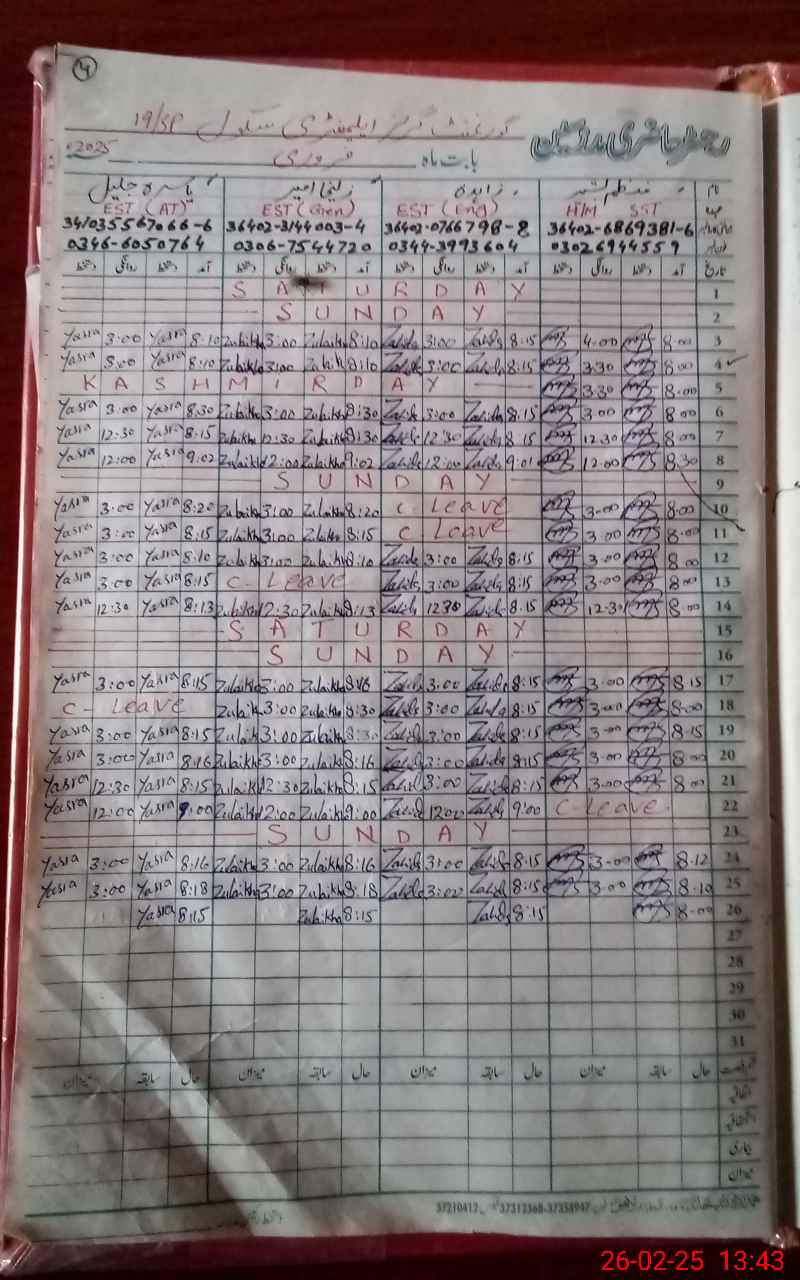 4
رجسٹر حاضری مدرسین
گورنمنٹ گرلز ایلیمنٹری سکول 19/SP
بابت ماہ فروری 2025
نام منظم زاہدہ زلیخا امیر یاسرہ جلیل
EST (AT) EST (Gen) EST (Eng) H/M SST
34/0355567066-6 36402-3144003-4 36402-0766798-8 36402-6869381-6
0346-6050764 0306-7544720 0344-3993604 03026944559
تاریخ آمد دستخط روانگی دستخط آمد دستخط روانگی دستخط آمد دستخط روانگی دستخط آمد دستخط روانگی دستخط
SATURDAY 1
SUNDAY 2
Yasra 3:00 Yasra 8:10 Zulaikha 3:00 Zulaikha 8:10 Zahida 3:00 Zahida 8:15 4:00 8:00 3
Yasra 3:00 Yasra 8:10 Zulaikha 3:00 Zulaikha 8:10 Zahida 3:00 Zahida 8:15 3:30 8:00 4
KASHMIR DAY 3:30 8:00 5
Yasra 3:00 Yasra 8:30 Zulaikha 3:00 Zulaikha 8:30 Zahida 3:00 Zahida 8:15 3:00 8:00 6
Yasra 12:30 Yasra 8:15 Zulaikha 12:30 Zulaikha 8:30 Zahida 12:30 Zahida 8:15 12:30 8:00 7
Yasra 12:00 Yasra 9:02 Zulaikha 12:00 Zulaikha 9:02 Zahida 12:00 Zahida 9:01 12:00 8:30 8
SUNDAY 9
Yasra 3:00 Yasra 8:20 Zulaikha 3:00 Zulaikha 8:20 C Leave 3:00 8:00 10
Yasra 3:00 Yasra 8:15 Zulaikha 3:00 Zulaikha 8:15 C Leave 3:00 8:00 11
Yasra 3:00 Yasra 8:10 Zulaikha 3:00 Zulaikha 8:10 Zahida 3:00 Zahida 8:15 3:00 8:00 12
Yasra 3:00 Yasra 8:15 C-Leave Zahida 3:00 Zahida 8:15 3:00 8:00 13
Yasra 12:30 Yasra 8:13 Zulaikha 12:30 Zulaikha 8:13 Zahida 12:30 Zahida 8:15 12:30 8:00 14
SATURDAY 15
SUNDAY 16
Yasra 3:00 Yasra 8:15 Zulaikha 3:00 Zulaikha Zahida 3:00 Zahida 8:15 3:00 8:15 17
C-Leave Zulaikha 3:00 Zulaikha 8:30 Zahida 3:00 Zahida 8:15 3:00 8:00 18
Yasra 3:00 Yasra 8:15 Zulaikha 3:00 Zulaikha 8:30 Zahida 3:00 Zahida 8:15 3:00 8:15 19
Yasra 3:00 Yasra 8:16 Zulaikha 3:00 Zulaikha 8:16 Zahida 3:00 Zahida 8:15 3:00 8:00 20
Yasra 12:30 Yasra 8:15 Zulaikha 12:30 Zulaikha 8:15 Zahida 3:00 Zahida 8:15 3:00 8:00 21
Yasra 12:00 Yasra 9:00 Zulaikha 12:00 Zulaikha 9:00 Zahida 12:00 Zahida 9:00 C-Leave 22
SUNDAY 23
Yasra 3:00 Yasra 8:16 Zulaikha 3:00 Zulaikha 8:16 Zahida 3:00 Zahida 8:15 3:00 8:12 24
Yasra 3:00 Yasra 8:18 Zulaikha 3:00 Zulaikha 8:18 Zahida 3:00 Zahida 8:15 3:00 8:10 25
Yasra 8:15 Zulaikha 8:15 Zahida 8:15 8:00 26
27
28
29
30
31
حال سابقہ میزان حال سابقہ میزان حال سابقہ میزان حال سابقہ میزان
اتفاقیہ
بیماری
میزان
37210412 37312368-37358947
26-02-25 13:43